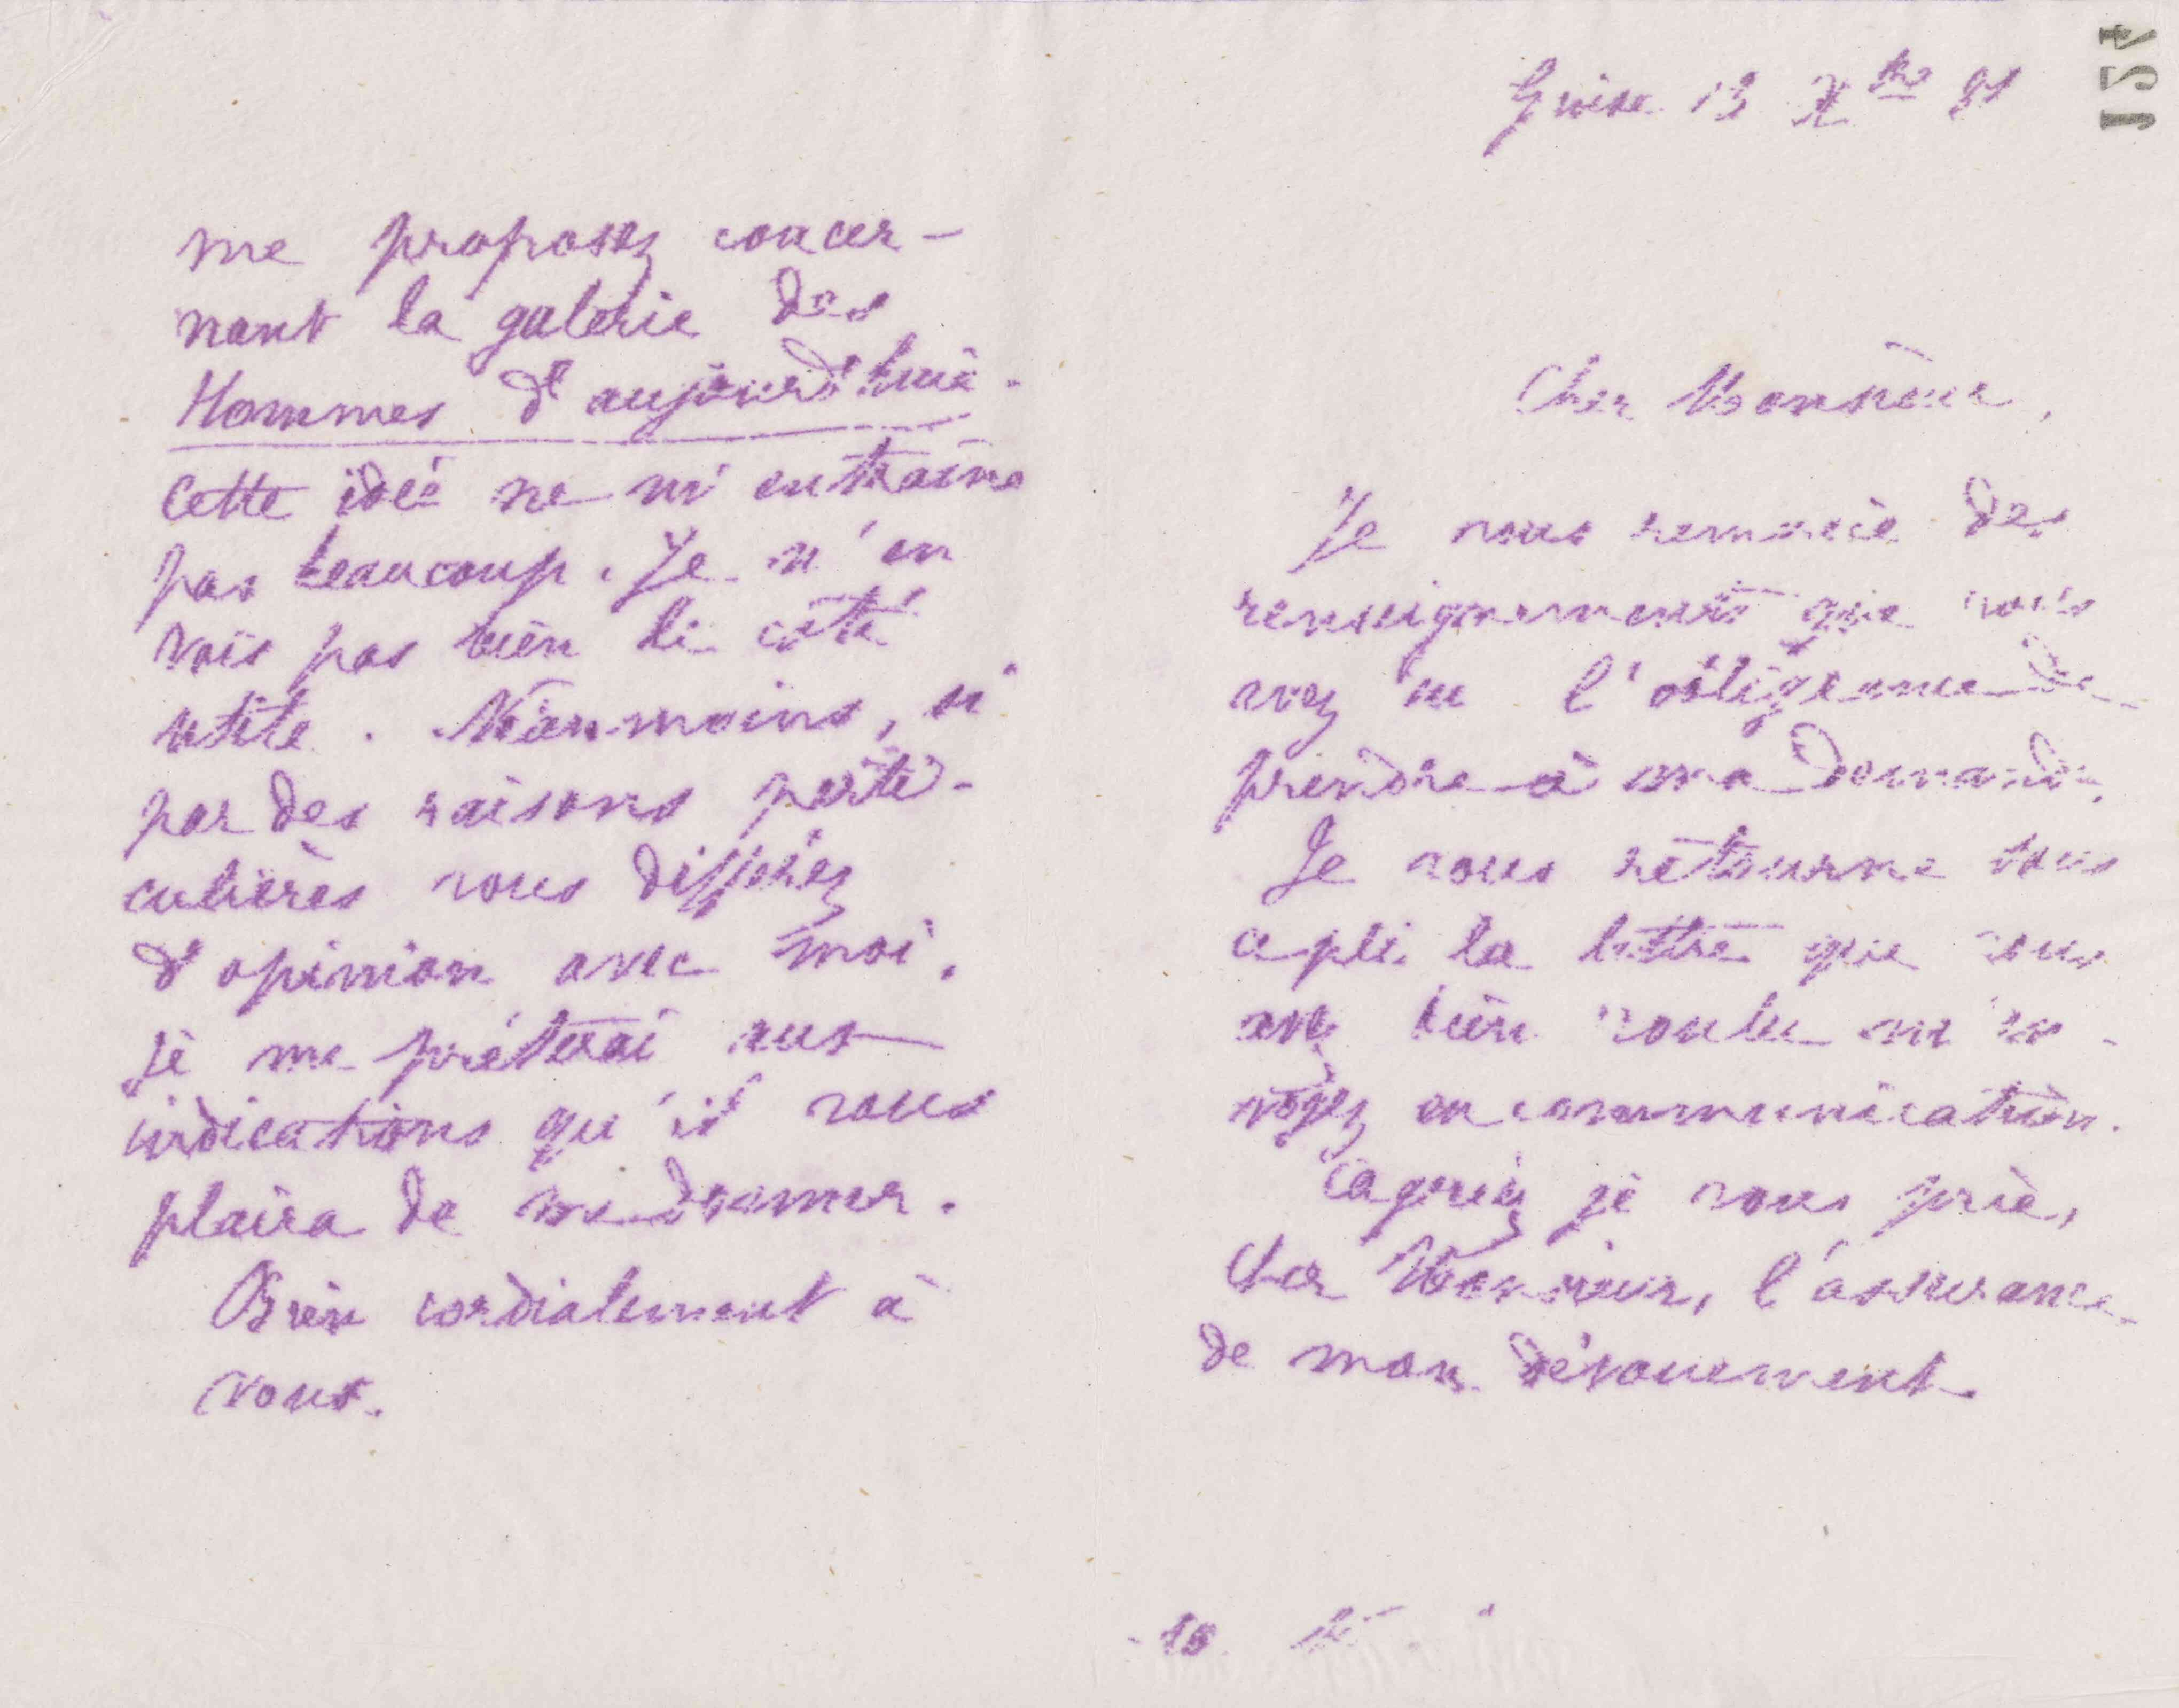 me proposez concer-
nant la galerie des
Hommes d'aujourd'hui.
Cette idée ne m'entraîne
pas beaucoup. Je n'en
vois pas bien le côté
utile. Néanmoins, si
par des raisons parti-
culières vous différez
d'opinion avec moi,
je me prêterai aux
indications qu'il vous
plaira de me donner.
Bien cordialement à
vous.
Guise 13 Xbre 81
154
Cher Monsieur,
Je vous remercie des
renseignements que vous
avez eu l'obligeance de
prendre à ma demande.
Je vous retourne sous
ce pli la lettre que vous
avez bien voulu m'en-
voyer en communication.
Agréez je vous prie,
Cher Monsieur, l'assurance
de mon dévouement.